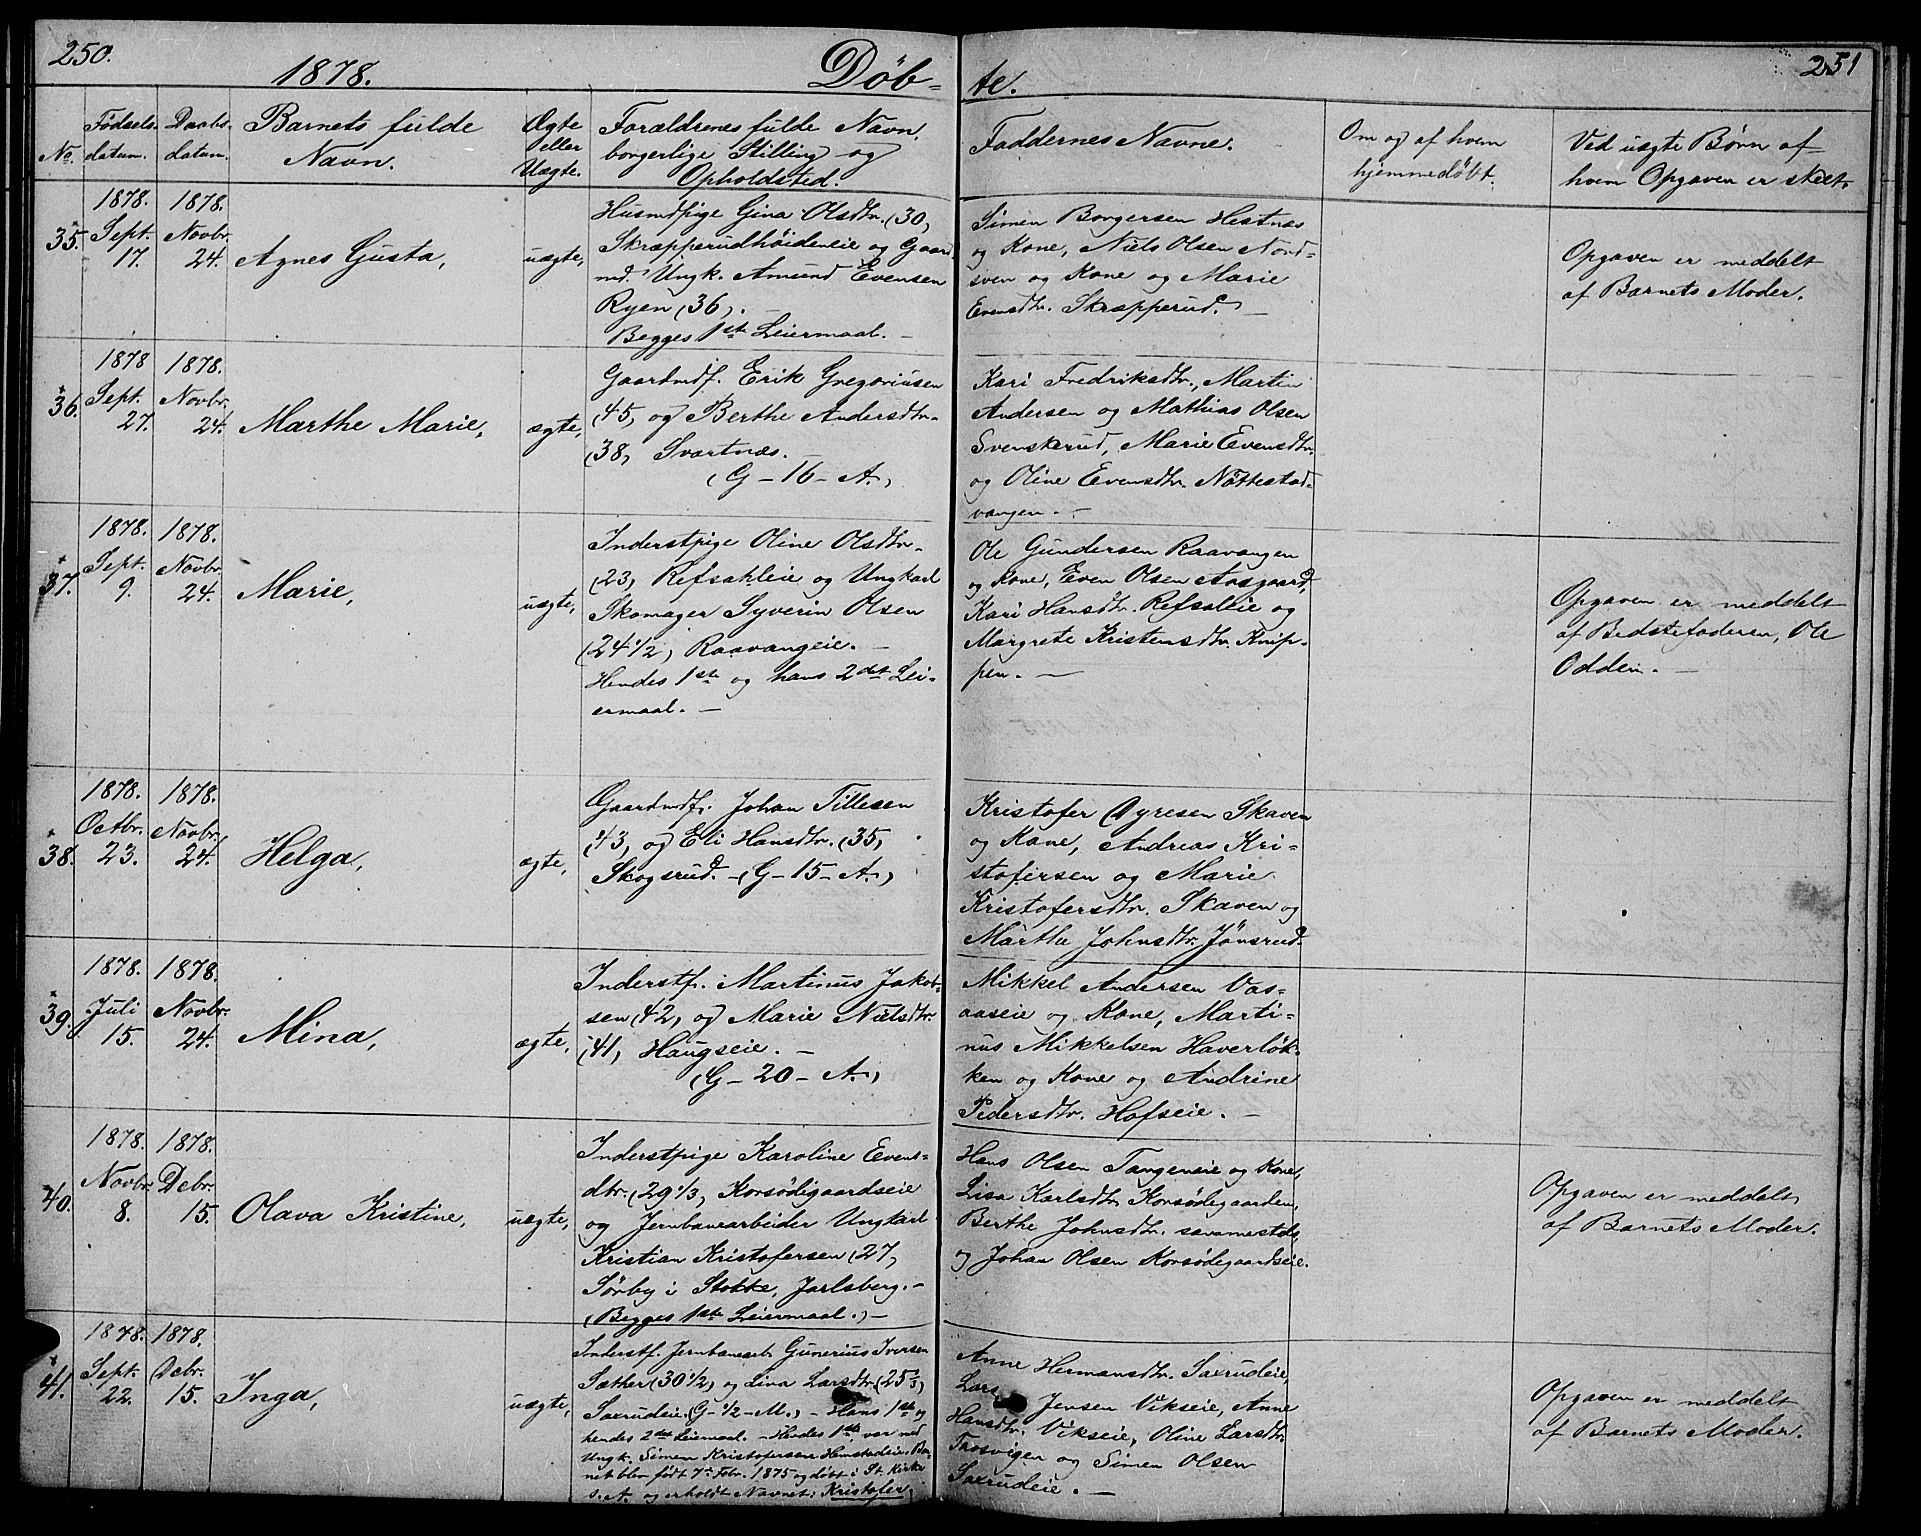 250.
1878.
Döb-
te.
251
No.
Fødsels-
datum.
Daabs-
datum.
Barnets fulde
Navn.
Ægte
eller
Uægte.
Forældrenes fulde Navn,
borgerlige Stilling og
Opholdsted.
Faddernes Navne.
Om og af hvem
hjemmedøbt.
Ved uægte Børn af
hvem Opgaven er skeet.
35.
1878.
Sept.
17.
1878.
Novbr.
24.
Agnes Gusta,
uægte,
Husmdpige Gina Olsdtr. (30,
Skræpperudhöideneie og Gaard
md. Ungk. Amund Evensen
Ryen (36). –
Begges 1ste Leiermaal. –
Simen Borgersen Hestnæs
og Kone, Niels Olsen Nord-
sven og Kone og Marie
Evensdtr. Skræpperud. –
Opgaven er meddelt
af Barnets Moder.
36.
1878
Sept.
27.
1878.
Novbr.
24.
Marthe Marie,
ægte,
Gaardmdf. Erik Gregoriusen
(45, og Berthe Andersdtr.
(38, Svartnæs. –
(G – 16 – A.)
Kari Fredriksdtr., Martin
Andersen og Mathias Olsen
Svenskerud, Marie Evensdtr.
og Oline Evensdtr. Nöttestad-
vangen. –
37.
1878.
Sept.
9.
1878.
Novbr.
24.
Marie,
uægte,
Inderstpige Oline Olsdtr.
(23, Refsahleie og Ungkarl
Skomager Syverin Olsen
(24 1/2, Raavangeie. –
Hendes 1ste og hans 2det Lei-
ermaal. –
Ole Gundersen Raavangen
og Kone, Even Olsen Aasgaard,
Kari Hansdtr. Refsaleie og
Margrete Kristensdtr. Knip-
pen. –
Opgaven er meddelt
af Bedstefaderen, Ole
Odden. –
38.
1878.
Octbr.
23.
1878.
Novbr.
24.
Helga,
ægte,
Gaardmdf. Johan Tillesen
(43, og Eli Hansdtr. (35,
Skogsrud. – (G – 15 – A.)
Kristofer Gyresen Skaven
og Kone, Andreas Kri-
stofersen og Marie
Kristofersdtr. Skaven og
Marthe Johnsdtr. Jönsrud.
39.
1878.
Juli
15.
1878.
Novbr.
24.
Mina,
ægte,
Inderstf. Martinus Jakob-
sen (42, og Marie Nielsdtr.
(41, Haugseie. –
(G – 20 – A.)
Mikkel Andersen Vas-
aaseie og Kone, Marti-
nus Mikkelsen Haverløk-
ken og Kone og Andrine
Pedersdtr. Hofseie. –
40.
1878.
Novbr.
8.
1878.
Debr.
15.
Olava Kristine,
uægte,
Inderstpige Karoline Evens-
dtr. (29 1/3, Korsödegaardseie
og Jernbanearbeider Ungkarl
Kristian Kristofersen (27,
Sörby i Stokke, Jarlsberg. –
(Begges 1ste Leiermaal.) –
Hans Olsen Tangeneie og Kone,
Lisa Karlsdtr. Korsödegaarden,
Berthe Johnsdtr. sammestds.
og Johan Olsen Korsödegaardseie.
Opgaven er meddelt
af Barnets Moder.
41.
1878.
Sept.
22.
1878.
Debr.
15.
Inga,
uægte,
Inderstf. Jernbanearb. Gunerius Iversen
Sæther (30 1/2, og Lina Larsdtr. (25 2/3,
Saxrudeie. (G – 1/2 – M.) – Hans 1ste og
hendes 2det Leiermaal. – Hendes 1ste var med
Ungk. Simen Kristofersen Hemstadeie. Bar-
net blev født 7de Febr. 1875 og døbt i St. Kirke
s. A. og erholdt Navnet: Kristofer.
Anne Hermansdtr. Saxrudeie,
Lars Jensen Vikseie, Anne
Hansdtr. Vikseie, Oline Larsdtr.
Taasvigen og Simen Olsen
Saxrudeie. –
Opgaven er meddelt
af Barnets Moder.